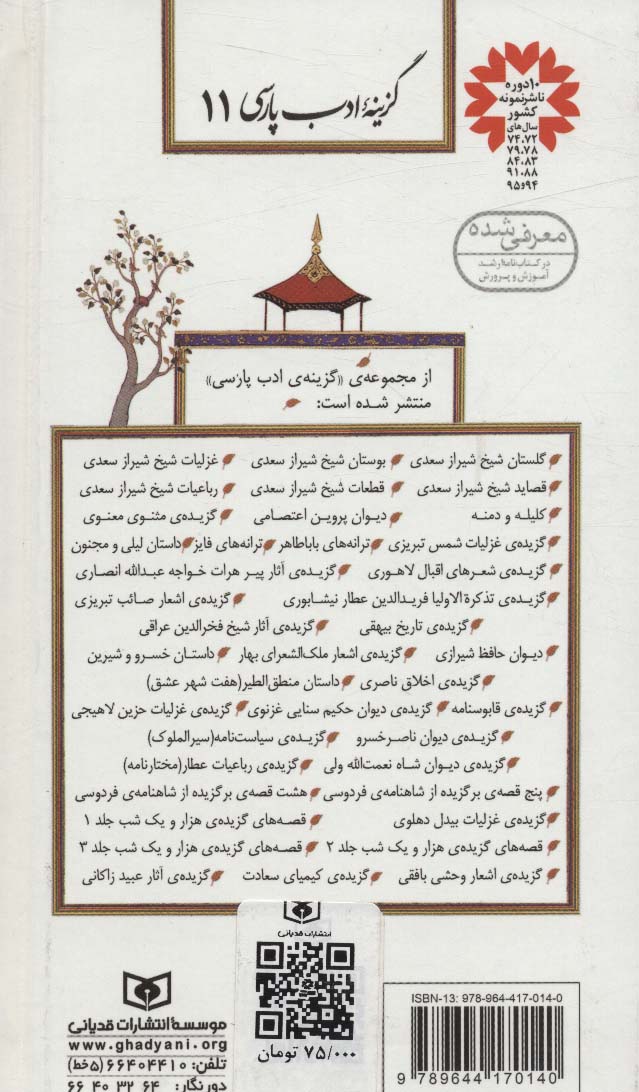 گزینهٔ ادب پارسی ۱۱
۱۰ دوره
ناشر نمونه
کشور
سال‌های
۷۴،۷۲
۷۹،۷۸
۸۴،۸۳
۹۱،۸۸
۹۴و۹۵
معرفی شده
در کتاب‌نامهٔ رشد
آموزش و پرورش
از مجموعه‌ی «گزینه‌ی ادب پارسی»
منتشر شده است:
گلستان شیخ شیراز سعدی بوستان شیخ شیراز سعدی غزلیات شیخ شیراز سعدی
قصاید شیخ شیراز سعدی قطعات شیخ شیراز سعدی رباعیات شیخ شیراز سعدی
کلیله و دمنه دیوان پروین اعتصامی گزیده‌ی مثنوی معنوی
گزیده‌ی غزلیات شمس تبریزی ترانه‌های باباطاهر ترانه‌های فایز داستان لیلی و مجنون
گزیده‌ی شعرهای اقبال لاهوری گزیده‌ی آثار پیر هرات خواجه عبدالله انصاری
گزیده‌ی تذکرة الاولیا فریدالدین عطار نیشابوری گزیده‌ی اشعار صائب تبریزی
گزیده‌ی تاریخ بیهقی گزیده‌ی آثار شیخ فخرالدین عراقی
دیوان حافظ شیرازی گزیده‌ی اشعار ملک‌الشعرای بهار داستان خسرو و شیرین
گزیده‌ی اخلاق ناصری داستان منطق‌الطیر(هفت شهر عشق)
گزیده‌ی قابوسنامه گزیده‌ی دیوان حکیم سنایی غزنوی گزیده‌ی غزلیات حزین لاهیجی
گزیده‌ی دیوان ناصرخسرو گزیده‌ی سیاست‌نامه(سیرالملوک)
گزیده‌ی دیوان شاه نعمت‌الله ولی گزیده‌ی رباعیات عطار(مختارنامه)
پنج قصه‌ی برگزیده از شاهنامه‌ی فردوسی هشت قصه‌ی برگزیده از شاهنامه‌ی فردوسی
گزیده‌ی غزلیات بیدل دهلوی قصه‌های گزیده‌ی هزار و یک شب جلد ۱
قصه‌های گزیده‌ی هزار و یک شب جلد ۲ قصه‌های گزیده‌ی هزار و یک شب جلد ۳
گزیده‌ی اشعار وحشی بافقی گزیده‌ی کیمیای سعادت گزیده‌ی آثار عبید زاکانی
انتشارات قدیانی
۷۵/۰۰۰ تومان
ISBN-13: 978-964-417-014-0
9 789644 170140
موسسهٔ انتشارات قدیانی
www.ghadyani.org
تلفن: ۶۶۴۰۴۴۱۰ (۵خط)
دورنگار: ۶۶ ۴۰ ۳۲ ۶۴